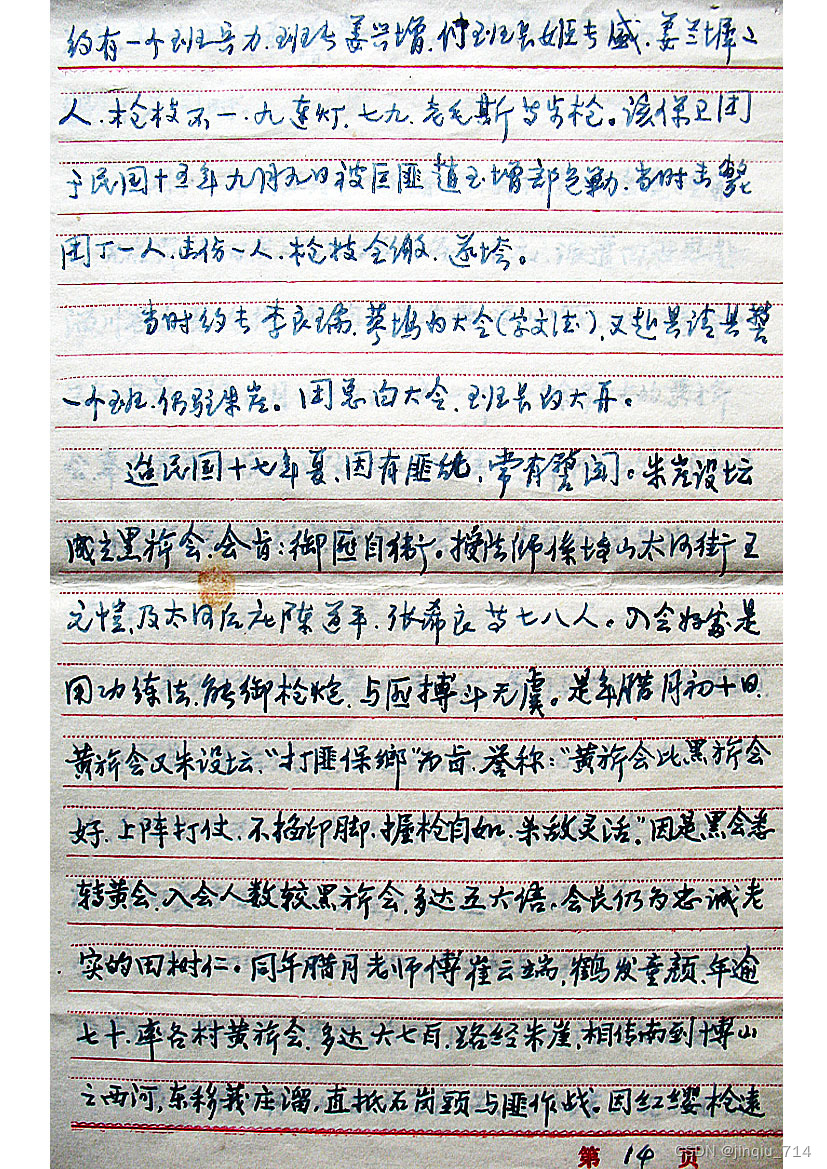 约有一个班兵力.班长姜兴增.付班长姬长盛.姜兰墀二
人.枪枝不一.九连灯.七九.老毛斯等步枪。该保卫团
于民国十五年九月九日被巨匪赵玉增部包勦.当时击毙
团丁一人.击伤一人.枪枝全缴.遂垮。
当时约长李良瑞.为大令(字文法),又赴县请县警
一个班.仍驻朱崖。团总白大令.班长段大再。
造民国十七年夏,因有匪乱,常有警闻。朱崖设坛
成立黑旂会.会旨:御匪自衛。授法师係博山太河街王
元愷,及太河后庄陈道平.张希良等七八人。入会好處是
用功练法.能御枪炮.与匪搏斗无虞。是年腊月初十日.
黄旂会又朱设坛.“打匪保鄉”为旨.誉称:“黄旂会比黑旂会
好.上阵打仗.不掐印脚.握枪自如.杀敌灵活。”因是黑会悉
转黄会.入会人数较黑旂会.多达五六倍.会长仍为忠诚老
实的田树仁。同年腊月老师傅崔云端,鹤发童颜.年逾
七十.率各村黄旂会.多达六七百.路经朱崖,相传南到博山
之西河,东移莪庄溜,直抵石岗頭与匪作战。因红缨枪遠
第 14 页
CSDN @jinqiu_714